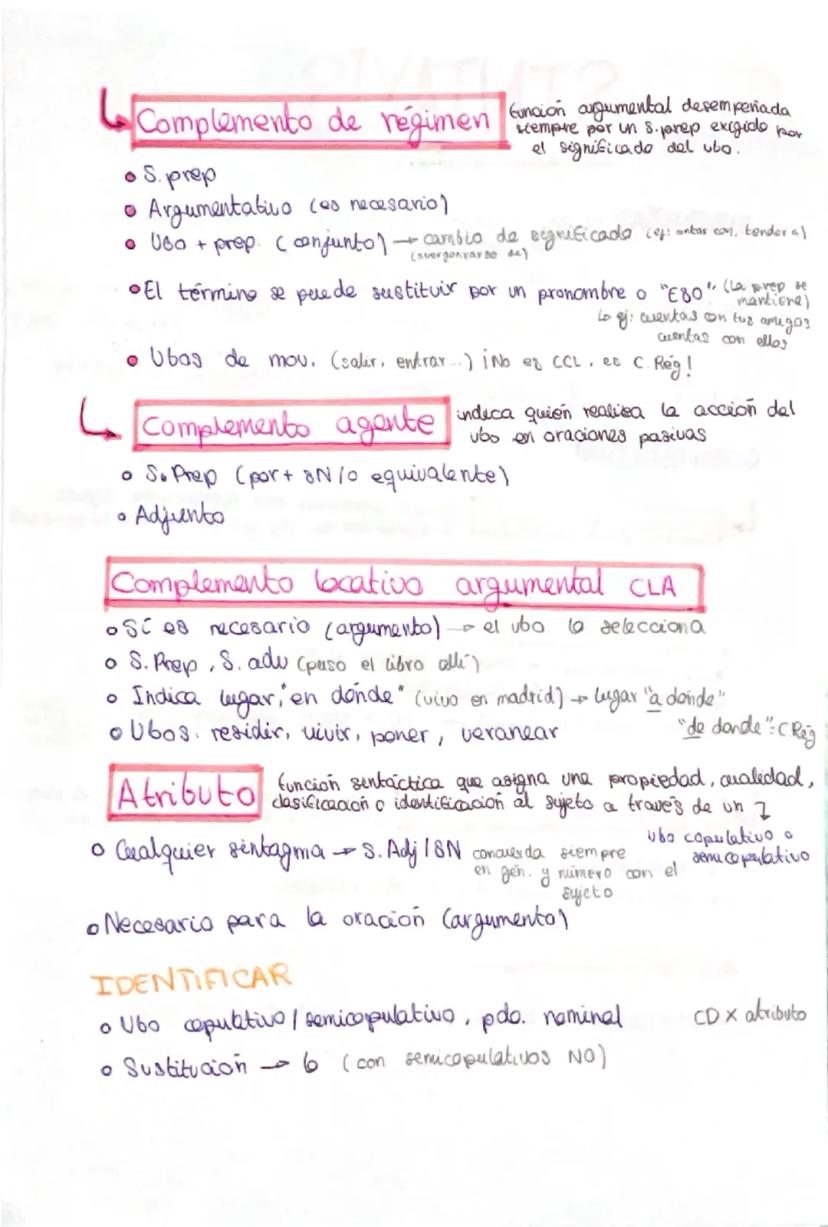 Complemento de régimen función argumental desempeñada
siempre por un S.prep exigido por
el significado del vbo.
• S. prep
• Argumentativo (es necesario)
• Vbo + prep. (conjunto) → cambio de significado (ej: contar con, tender a)
(avergonzarse de)
• El término se puede sustituir por un pronombre o "ESO" (La prep se
mantiene)
↳ ej: cuentas con tus amigos
cuentas con ellos
• Vbos de mov. (salir, entrar...) ¡No es CCL, es C. Rég!
Complemento agente indica quién realiza la acción del
vbo en oraciones pasivas
• S. Prep (por + SN/o equivalente)
• Adjunto
Complemento locativo argumental CLA
• Sí es necesario (argumento) → el vbo lo selecciona
• S. Prep, S. adv (puso el libro allí)
• Indica lugar, "en dónde" (vivo en madrid) → lugar "a dónde"
"de donde" = C Rég
• Vbos: residir, vivir, poner, veranear
Atributo función sintáctica que asigna una propiedad, cualidad,
clasificación o identificación al sujeto a través de un
vbo copulativo o
semicopulativo
• Cualquier sintagma → S. Adj / SN concuerda siempre
en gén. y número con el
sujeto
• Necesario para la oración (argumento)
IDENTIFICAR
• Vbo copulativo / semicopulativo, pdo. nominal CD X atributo
• Sustitución → lo (con semicopulativos NO)